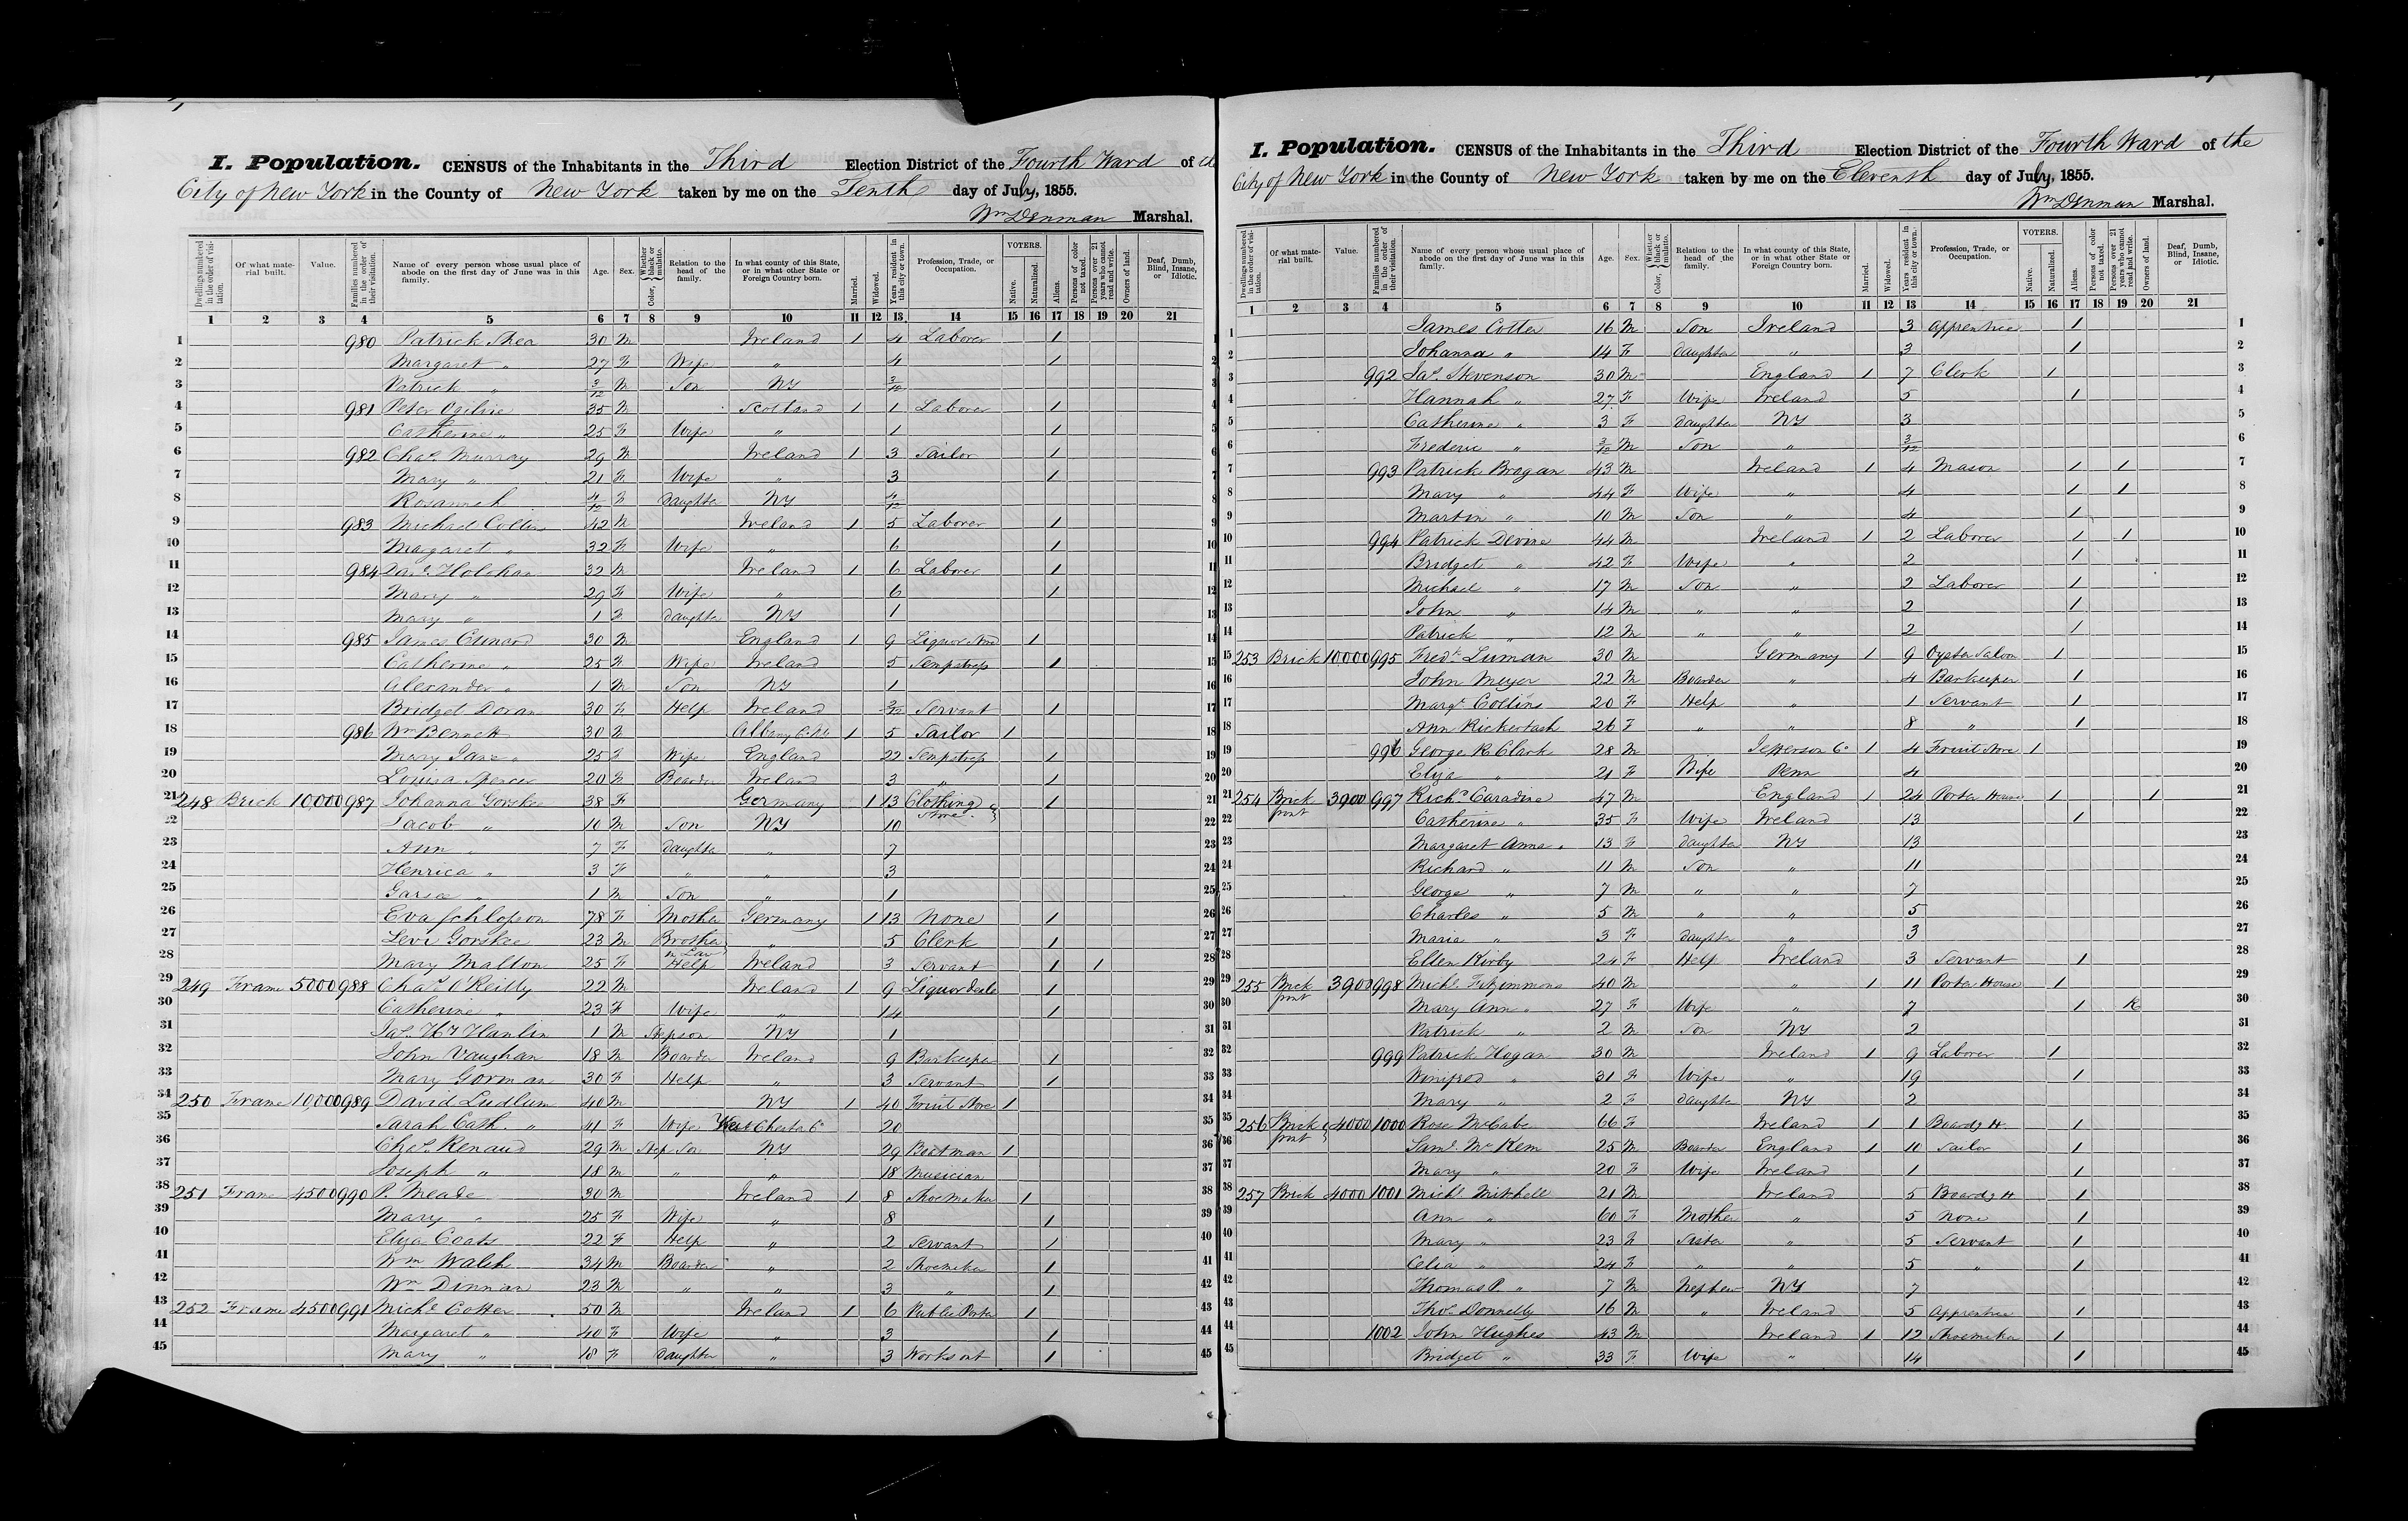 I. Population. CENSUS of the Inhabitants in the Third Election District of the Fourth Ward of
City of New York in the County of New York taken by me on the Tenth day of July, 1855.
Wm Denman Marshal.
Dwellings numbered in the order of visitation. Of what material built. Value. Families numbered in the order of their visitation. Name of every person whose usual place of abode on the first day of June was in this family. Age. Sex. Color, Whether black or mulatto. Relation to the head of the family. In what county of this State, or in what other State or Foreign Country born. Married. Widowed. Years resident in this city or town. Profession, Trade, or Occupation. VOTERS. Native. Naturalized. Aliens. Persons of color not taxed. Persons over 21 years who cannot read and write. Owners of land. Deaf, Dumb, Blind, Insane, or Idiotic.
1 2 3 4 5 6 7 8 9 10 11 12 13 14 15 16 17 18 19 20 21
1 980 Patrick Shea 30 M Ireland 1 4 Laborer 1 1
2 Margaret " 27 F Wife " 4 1 2
3 Patrick " 3/12 M Son NY 3/12 3
4 981 Peter Ogilvie 35 M Scotland 1 1 Laborer 1 4
5 Catherine " 25 F Wife " 1 1 5
6 982 Chas. Murray 29 M Ireland 1 3 Sailor 1 6
7 Mary " 21 F Wife " 3 1 7
8 Rosannah 4/12 F Daughter NY 4/12 8
9 983 Michael Collin 42 M Ireland 1 5 Laborer 1 9
10 Margaret " 32 F Wife " 6 1 10
11 984 Holehan 32 M Ireland 1 6 Laborer 1 11
12 Mary " 29 F Wife " 6 1 12
13 Mary " 1 F Daughter NY 1 13
14 985 James 30 M England 1 9 Liquor Store 1 14
15 Catherine " 25 F Wife Ireland 5 Sempstress 1 15
16 Alexander " 1 M Son NY 1 16
17 Bridget Doran 30 F Help Ireland 3/12 Servant 1 17
18 986 Wm Bennett 30 M Albany 1 5 Sailor 1 18
19 Mary Jane " 25 F Wife England 22 Sempstress 1 19
20 Louisa Spencer 20 F Boarder Ireland 3 " 1 20
21 248 Brick 10,000 987 Johanna Gorskee 38 F Germany 1 13 Clothing Store 1 21
22 Jacob " 10 M Son NY 10 22
23 Ann " 7 F Daughter " 7 23
24 Henrica " 3 F " " 3 24
25 " 1 M Son " 1 25
26 Eva Schlosson 78 F Mother Germany 1 13 None 1 26
27 Levi Gorskee 23 M Brother in Law " 5 Clerk 1 27
28 Mary Malton 25 F Help Ireland 3 Servant 1 1 28
29 249 Frame 5000 988 Chas. O'Reilly 22 M Ireland 1 9 Liquor dealer 1 29
30 Catherine " 23 F Wife " 14 1 30
31 Jas. Hanlin 1 M Stepson NY 1 31
32 John Vaughan 18 M Boarder Ireland 9 Barkeeper 1 32
33 Mary Gorman 30 F Help " 3 Servant 1 33
34 250 Frame 10,000 989 David Ludlum 40 M NY 1 40 Fruit Store 1 34
35 Sarah Cath. " 41 F Wife West Chester Co 20 35
36 Chas. Renaud 29 M Step Son NY 29 Boatman 1 36
37 Joseph " 18 M " " 18 Musician 37
38 251 Frame 4500 990 P. Meade 30 M Ireland 1 8 Shoemaker 1 38
39 Mary " 25 F Wife " 8 1 39
40 Eliza Coats 22 F Help " 2 Servant 1 40
41 Wm Walsh 34 M Boarder " 2 Shoemaker 1 41
42 Wm Dinnan 23 M " " 3 " 1 42
43 252 Frame 4500 991 Michl. Cotter 50 M Ireland 1 6 Public Porter 1 43
44 Margaret " 40 F Wife " 3 1 44
45 Mary " 18 F Daughter " 3 Works out 1 45
I. Population. CENSUS of the Inhabitants in the Third Election District of the Fourth Ward of the
City of New York in the County of New York taken by me on the Eleventh day of July, 1855.
Wm Denman Marshal.
Dwellings numbered in the order of visitation. Of what material built. Value. Families numbered in the order of their visitation. Name of every person whose usual place of abode on the first day of June was in this family. Age. Sex. Color, Whether black or mulatto. Relation to the head of the family. In what county of this State, or in what other State or Foreign Country born. Married. Widowed. Years resident in this city or town. Profession, Trade, or Occupation. VOTERS. Native. Naturalized. Aliens. Persons of color not taxed. Persons over 21 years who cannot read and write. Owners of land. Deaf, Dumb, Blind, Insane, or Idiotic.
1 2 3 4 5 6 7 8 9 10 11 12 13 14 15 16 17 18 19 20 21
1 James Cotter 16 M Son Ireland 3 Apprentice 1 1
2 Johanna " 14 F daughter " 3 1 2
3 992 Jas. Stevenson 30 M England 1 7 Clerk 1 3
4 Hannah " 27 F Wife Ireland 5 1 4
5 Catherine " 3 F daughter NY 3 5
6 Frederic " 3/12 M Son " 3/12 6
7 993 Patrick Brogan 43 M Ireland 1 4 Mason 1 1 7
8 Mary " 44 F Wife " 4 1 1 8
9 Martin " 10 M Son " 4 1 9
10 994 Patrick Devine 44 M Ireland 1 2 Laborer 1 1 10
11 Bridget " 42 F Wife " 2 1 11
12 Michael " 17 M Son " 2 Laborer 1 12
13 John " 14 M " " 2 1 13
14 Patrick " 12 M " " 2 1 14
15 253 Brick 10,000 995 Fredk. Luman 30 M Germany 1 9 Oyster Saloon 1 15
16 John Meyer 22 M Boarder " 4 Barkeeper 1 16
17 Margt. Collins 20 F Help " 1 Servant 1 17
18 Ann Rickertash 26 F " " 8 " 1 18
19 996 George R Clark 28 M Jefferson Co 1 4 Fruit Store 1 19
20 Eliza " 21 F Wife Penn 4 20
21 254 Brick front 3900 997 Richd. Caradine 47 M England 1 24 Porter House 1 1 21
22 Catherine " 35 F Wife Ireland 13 1 22
23 Margaret Anna " 13 F daughter NY 13 23
24 Richard " 11 M Son " 11 24
25 George " 7 M " " 7 25
26 Charles " 5 M " " 5 26
27 Maria " 3 F daughter " 3 27
28 Ellen Kirby 24 F Help Ireland 3 Servant 1 28
29 255 Brick front 3900 998 Michl. Fitzimmons 40 M " 1 11 Porter House 1 29
30 Mary Ann " 27 F Wife " 7 1 R 30
31 Patrick " 2 M Son NY 2 31
32 999 Patrick Hogan 30 M Ireland 1 9 Laborer 1 32
33 Winifred " 31 F Wife " 19 1 33
34 Mary " 2 F daughter NY 2 34
35 256 Brick front 4000 1000 Rose McCabe 66 F Ireland 1 1 Boardg H. 1 35
36 Saml. McKem 25 M Boarder England 1 10 Sailor 1 36
37 Mary " 20 F Wife Ireland 1 1 37
38 257 Brick 4000 1001 Michl. Mitchell 21 M Ireland 5 Boardg H 1 38
39 Ann " 60 F Mother " 5 None 1 39
40 Mary " 23 F Sister " 5 Servant 1 40
41 Celia " 24 F " " 5 " 1 41
42 Thomas P. " 7 M Nephew NY 7 42
43 Thos. Donnelly 16 M " Ireland 5 Apprentice 1 43
44 1002 John Hughes 43 M Ireland 1 12 Shoemaker 1 44
45 Bridget " 33 F Wife " 14 1 45